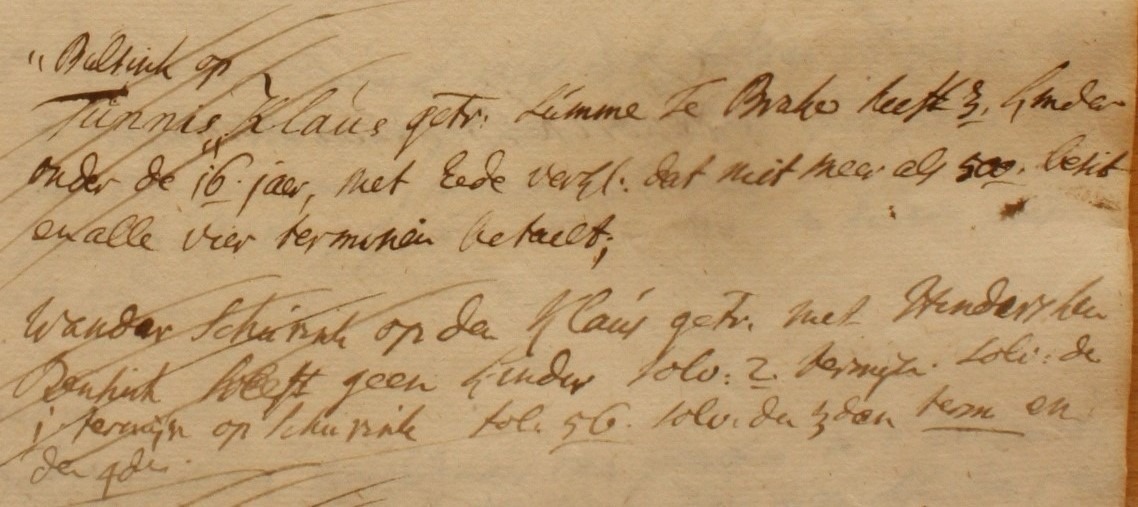 " Bultink op
Tünnis " Klaüs getr. Lümme te Brake heeft 3. kinder
onder de 16. jaer, met Eede verkl. dat niet meer als 500. besit
en alle vier terminen betaelt;
Wander Schürink op den Klaüs getr. met Hindersken
Bentink heeft geen kinder solv: 2. termijn. solv: de
1 termijn op Schurink fol. 56. solv. den 3den term en
den 4den.